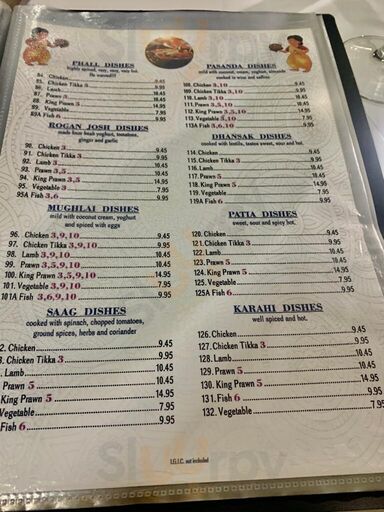 PHALL DISHES
highly spiced, very, very, very hot.
Be warned!!!
84. Chicken 9.45
85. Chicken Tikka 3 9.95
86. Lamb 10.45
87. Prawn 3 10.45
88. King Prawn 14.95
89. Vegetable 7.95
89A Fish 6 9.95
ROGAN JOSH DISHES
made from fresh yoghurt, tomatoes,
ginger and garlic
90. Chicken 3 9.45
91. Chicken Tikka 3 9.95
92. Lamb 3 10.45
93. Prawn 3,5 10.45
94. King Prawn 3,5 14.95
95. Vegetable 3 7.95
95A Fish 3,6 9.95
MUGHLAI DISHES
mild with coconut cream, yoghurt
and spiced with eggs
96. Chicken 3,9,10 9.45
97. Chicken Tikka 3,9,10 9.95
98. Lamb 3,9,10 10.45
99. Prawn 3,5,9,10 10.45
100. King Prawn 3,5,9,10 14.95
101. Vegetable 3,9,10 7.95
101A Fish 3,6,9,10 9.95
SAAG DISHES
cooked with spinach, chopped tomatoes,
ground spices, herbs and coriander
2. Chicken 9.45
3. Chicken Tikka 3 9.95
. Lamb 10.45
Prawn 5 10.45
King Prawn 5 14.95
Vegetable 7.95
Fish 6 9.95
PASANDA DISHES
mild with coconut, cream, yoghurt, almonds
cooked in wine and saffron
108. Chicken 3,10 9.45
109. Chicken Tikka 3,10 9.95
110. Lamb 3,10 10.45
111. Prawn 3,5,10 10.45
112. King Prawn 3,5,10 14.95
113. Vegetable 3,10 7.95
113A Fish 3,6,10 9.95
DHANSAK DISHES
cooked with lentils, tastes sweet, sour and hot.
114. Chicken 9.45
115. Chicken Tikka 3 9.95
116. Lamb 10.45
117. Prawn 5 10.45
118. King Prawn 5 14.95
119. Vegetable 7.95
119A Fish 6 9.95
PATIA DISHES
sweet, sour and spicy hot.
120. Chicken 9.45
121. Chicken Tikka 3 9.95
122. Lamb 10.45
123. Prawn 5 10.45
124. King Prawn 5 14.95
125. Vegetable 7.95
125A Fish 6 9.95
KARAHI DISHES
well spiced and hot.
126. Chicken 9.45
127. Chicken Tikka 3 9.95
128. Lamb 10.45
129. Prawn 5 10.45
130. King Prawn 5 14.95
131. Fish 6 9.95
132. Vegetable 7.95
I.G.I.C. not included